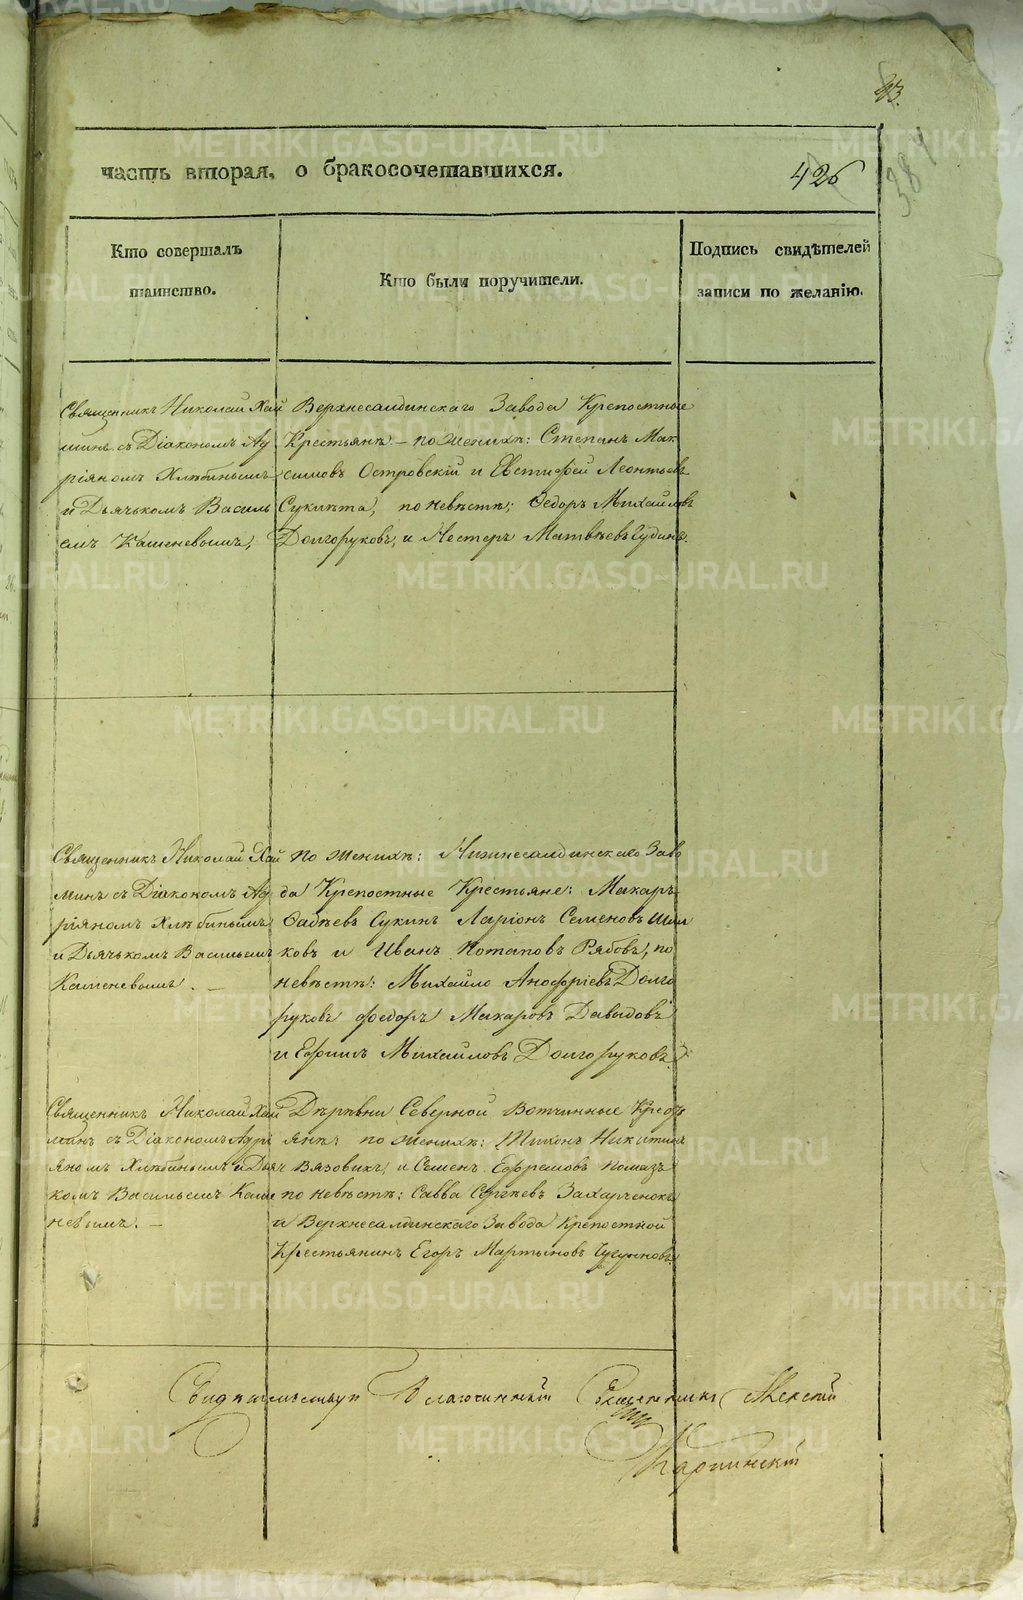 часть вторая, о бракосочетавшихся.
426
Кто совершалъ
таинство.
Кто были поручители.
Подпись свидѣтелей
записи по желанію.
Священникъ Николай Хай
минъ съ Діакономъ Ад
ріяномъ Хлѣбинымъ
и Дьячькомъ Василь
емъ Каменевымъ,
Верхнесалдинскаго Завода Крепостные
Крестьяне – по женихѣ: Степанъ Мак
симовъ Островскій и Евстифей Леонтьевъ
по невѣстѣ: Ѳедоръ Михайловъ
Долгоруковъ, и Нестеръ Матвѣевъ
Священникъ Николай Хай
минъ съ Діакономъ Ад
ріяномъ Хлѣбинымъ
и Дьячькомъ Васильемъ
Каменевымъ. –
по женихѣ: Нижнесалдинскаго Заво
да Крепостные Крестьяне: Макаръ
Фадѣевъ Сукинъ Ларіонъ Семеновъ
ковъ и Иванъ Потаповъ Рябовъ, по
невѣстѣ: Михайло Анофріевъ Долго
руковъ федоръ Макаровъ Давыдовъ
и Ефимъ Михайловъ Долгоруковъ.
Священникъ Николай Хай
минъ съ Діакономъ Адрі
яномъ Хлѣбинымъ и Дьяч
комъ Васильемъ Каме
невымъ. –
Деревни Северной Вотчинные Крестъ
янѣ по женихѣ: Тихонъ Никитинъ
Вязовикъ и Семенъ Ефремовъ Помазъ
по невѣстѣ: Савва Сергѣевъ Захарченокъ
и Верхнесалдинскаго Завода Крепостной
Крестьянинъ Егоръ Мартыновъ Чугуновъ.
Свидѣтельствуи Благочинный Священникъ
Карпинскій
METRIKI.GASO-URAL.RU